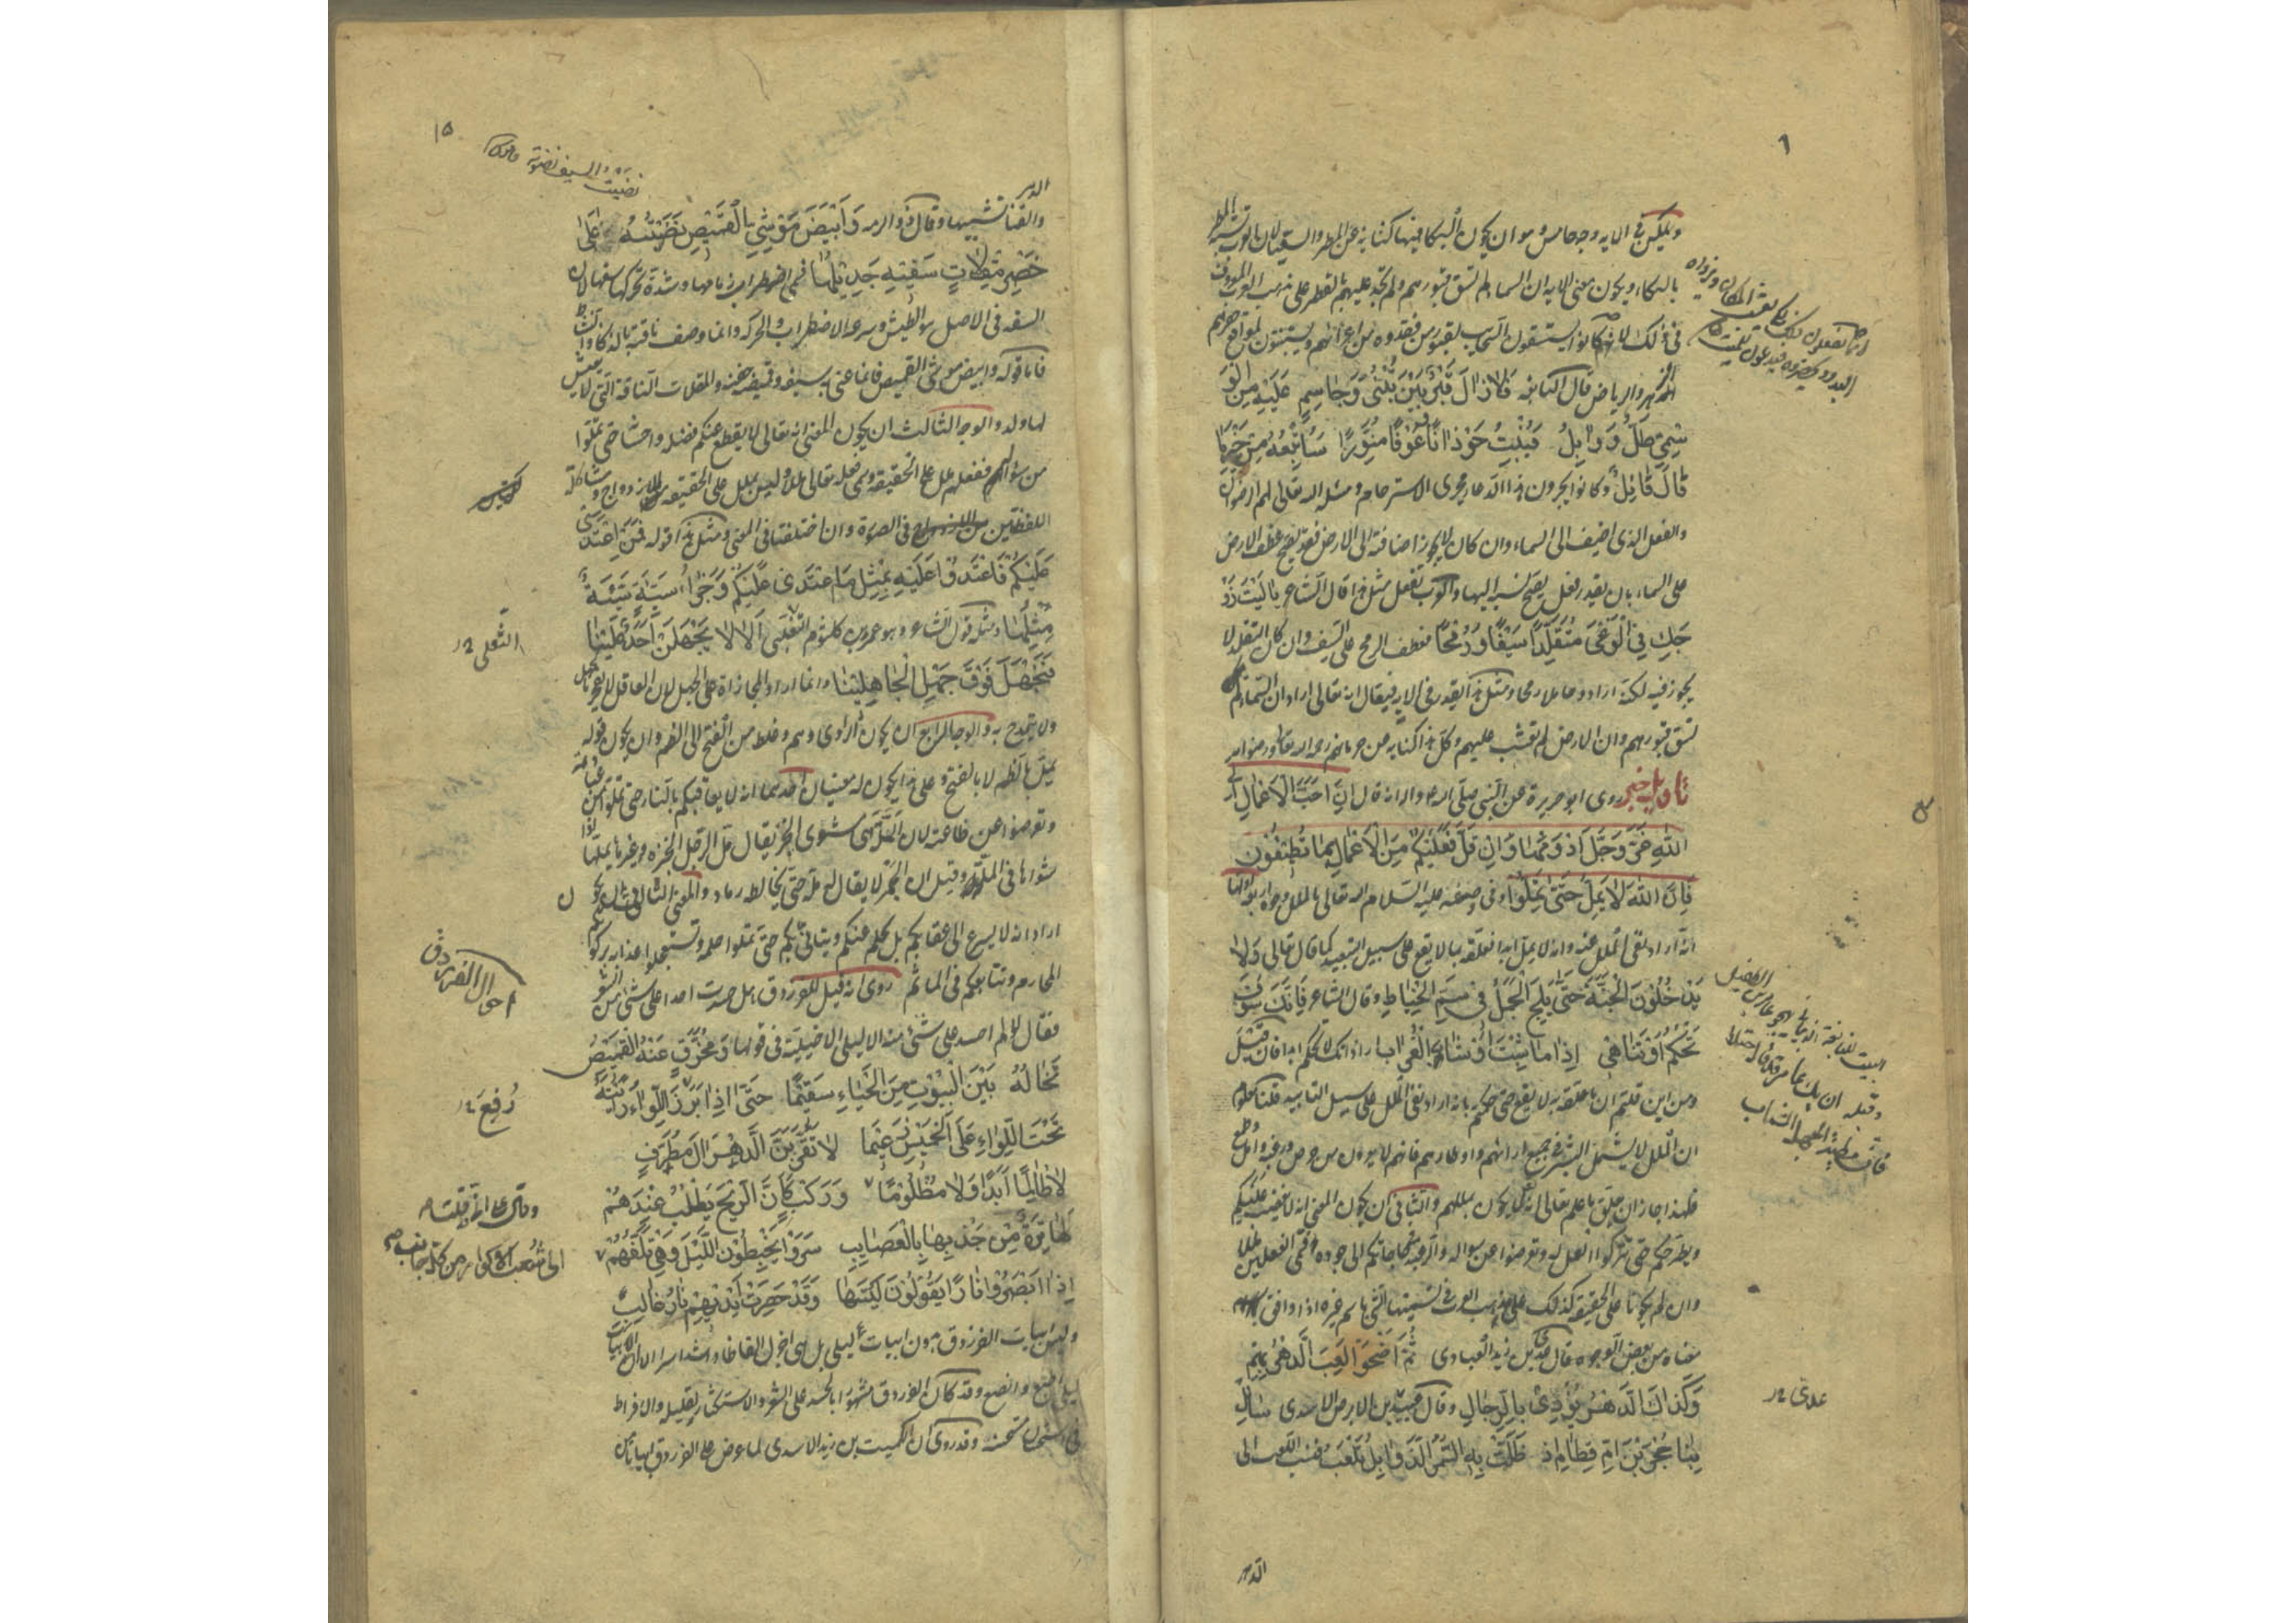 ويمكن في الآية وجه خامس وهو ان يكون البكا فيها كناية عن المطر والسقيا لان العرب تشبه المطر
بالبكاء ويكون معنى الاية ان السماء لم تسق قبورهم ولم تجد عليهم بالقطر على مذهب العرب المعروف
في ذلك لانهم كانوا يستسقون السحاب لقبور من فقدوه من اعزائهم ويستنبتون لمواقع حفرهم
الزهر والرياض قال النابغة فَلَا زَالَ قَبْرٌ بَيْنَ بُثْنَى وَجَاسِمٍ عَلَيْهِ مِنَ الْوَ
سْمِيِّ طَلٌّ وَوَابِلُ فَيُنْبِتُ حَوْذَانًا وَعَوْفًا مُنَوِّرًا سَأُتْبِعُهُ مِنْ خَيْرِ مَا
قَالَ قَائِلُ وكانوا يجرون هذا الدعاء مجرى الاسترحام ومسئلة الله تعالى لهم الرضوان
والفعل الذي اضيف الى السماء وان كان لا يجوز اضافته الى الارض فقد يصح عطف الارض
على السماء بان يقدر فعل يصح نسبته اليها والعرب تفعل مثل هذا قال الشاعر يَا لَيْتَ زَوْ
جَكِ فِي الْوَغَى مُتَقَلِّدًا سَيْفًا وَرُمْحًا فعطف الرمح على السيف وان كان التقلد لا
يجوز فيه لكنه اراد وحاملا رمحا ومثل هذا يقدر في الاية فيقال انه تعالى اراد ان السماء لم
تسق قبورهم وان الارض لم تعشب عليهم وكل هذا كناية عن حرمانهم رحمة الله تعالى ورضوانه
تأويل خبر روى ابو هريرة عن النبي صلى الله عليه واله انه قال اِنَّ اَحَبَّ الْاَعْمَالِ اِلَى
اللهِ عَزَّ وَجَلَّ اَدْوَمُهَا وَاِنْ قَلَّ فَعَلَيْكُمْ مِنَ الْاَعْمَالِ بِمَا تُطِيقُونَ
فَاِنَّ اللهَ لَا يَمَلُّ حَتَّى تَمَلُّوا وفي وصفه عليه السلام الله تعالى بالملل وجوه اربعة اولها
انه اراد نفى الملل عنه وانه لا يمل ابدا فعلقه بما لا يقع على سبيل التبعيد كما قال تعالى وَلَا
يَدْخُلُونَ الْجَنَّةَ حَتَّى يَلِجَ الْجَمَلُ فِي سَمِّ الْخِيَاطِ وقال الشاعر فَاِنَّكَ سَوْفَ
تَحْكُمُ اَوْ تَنَاهَى اِذَا مَا شِبْتَ اَوْ شَابَ الْغُرَابُ اراد انك لا تحكم ابدا فان قيل
ومن اين قلتم ان ما علقه به لا يقع حتى حكمتم بانه اراد نفى الملل على سبيل التابيد قلنا معلوم
ان الملل لا يشمل البشر في جميع ارائهم واوطارهم فانهم لا يعرون من حرص ورغبة وامل وطمع
فلهذا جاز ان يعلق ما علم تعالى انه لا يكون بمللهم والثاني ان يكون المعنى انه لا يغضب عليكم
ويطرحكم حتى تتركوا العمل له وتعرضوا عن سواله والرغبة في حاجاتكم الى جوده فسمى الفعلين مللا
وان لم يكونا على الحقيقة كذلك على مذهب العرب في تسميتها الشي باسم غيره اذا وافق
معناه من بعض الوجوه قال عدي بن زيد العبادى ثُمَّ اَضْحَوْا لَعِبَ الدَّهْرُ بِهِمْ
وَكَذَاكَ الدَّهْرُ يُوْدِيْ بِالرِّجَالِ وقال عبيد بن الابرص الاسدى سَائِلْ
بِنَا حُجْرَ بْنَ اُمِّ قَطَامِ اِذْ ظَلَّتْ بِهِ السُّمْرُ الذَّوَابِلُ تَلْعَبُ فنسب اللعب الى
عدى ١٢
الدهر
١٥
نضيت السيف نضوته
الدهر
والقنا تشبيها وقال ذو الرمه وَاَبْيَضَ مَوْشِيِّ الْقَمِيْصِ نَصَبْتُهُ عَلَى
خَصْرِ مِقْلَاتٍ سَفِيْهٍ جَدِيْلُهَا فسمى اضطراب زمامها وشدة تحركها سفها لان
السفه في الاصل هو الطيش وسرعة الاضطراب والحركة وانما وصف ناقته بالذكاء والنشاط
فاما قوله وابيض موشى القميص فانما عنى به سيفه وقميصه جفنه والمقلات الناقة التي لا يعيش
لها ولد والوجه الثالث ان يكون المعنى انه تعالى لا يقطع عنكم فضله واحسانه حتى تملوا
من سؤاله ففعلهم ملل على الحقيقة وسمى فعله تعالى مللا وليس بملل على الحقيقة للازدواج ومشاكلة
اللفظتين في الصورة وان اختلفتا في المعنى ومثل هذا قوله فَمَنِ اعْتَدَى
عَلَيْكُمْ فَاعْتَدُوْا عَلَيْهِ بِمِثْلِ مَا اعْتَدَى عَلَيْكُمْ وَجَزٰؤُا سَيِّئَةٍ سَيِّئَةٌ
مِثْلُهَا ومثله قول الشاعر وهو عمرو بن كلثوم التغلبى اَلَا لَا يَجْهَلَنْ اَحَدٌ عَلَيْنَا
فَنَجْهَلَ فَوْقَ جَهْلِ الْجَاهِلِيْنَا وانما اراد المجازاة على الجهل لان العاقل لا يفخر بالجهل
ولا يتمدح به والوجه الرابع ان يكون الراوى وهم وغلط من الفتح الى الضم وان يكون قوله
يمل بالضم لا بالفتح وعلى هذا يكون له معنيان احدهما انه لا يعاقبكم بالنار حتى تملوا من عبادته
وتعرضوا عن طاعته لان الملة هي مشوى الخبز يقال مل الرجل الخبزة وغيرها يملها اذا
شواها في الملة وقيل ان الجمر لا يقال له ملة حتى يخالطه رماد والمعنى الثانى ان يكون
اراد انه لا يسرع الى عقابكم بل يحلم عنكم ويتانى بكم حتى تملوا حلمه وتستعجلوا عذابه بركوبكم
المحارم وتتابعكم في المآثم روى انه قيل للفرزدق هل حسدت احدا على شئ من الشعر
فقال لا لم احسد على شئ منه الا ليلى الاخيلية في قولها وَمُخَرَّقٍ عَنْهُ الْقَمِيْصُ
تَخَالُهُ بَيْنَ الْبُيُوْتِ مِنَ الْحَيَاءِ سَقِيْمًا حَتَّى اِذَا بَرَزَ اللِّوَاءُ رَاَيْتَهُ
تَحْتَ اللِّوَاءِ عَلَى الْخَمِيْسِ زَعِيْمًا لَا تَقْرَبَنَّ الدَّهْرَ اٰلَ مُطَرِّفٍ
لَا ظَالِمًا اَبَدًا وَلَا مَظْلُوْمًا وَرَكْبٍ كَاَنَّ الرِّيْحَ يَطْلُبُ عِنْدَهُمْ
لَهَا تِرَةً مِنْ جَذْبِهَا بِالْعَصَايِبِ سَرَوْا يَخْبِطُوْنَ اللَّيْلَ وَهِيَ تَلُفُّهُمْ
اِذَا اَبْصَرُوْا نَارًا يَقُوْلُوْنَ لَيْتَهَا وَقَدْ خَصِرَتْ اَيْدِيْهِمْ نَارُ غَالِبٍ
وليس ابيات الفرزدق بدون ابيات ليلى بل هي اجزل الفاظا واشد اسرا الا ان ابيات
ليلى اطبع وانصع وقد كان الفرزدق مشهورا بالحسد على الشعر والاستكثار لقليله والافراط
في استحسان مستحسنه وقد روى ان الكميت بن زيد الاسدى لما عرض على الفرزدق ابياتا من
الثعلبى ١٢
احوال الفرزدق
رُفِعَ ١٢
الى شعب الاكوار من كل جانب